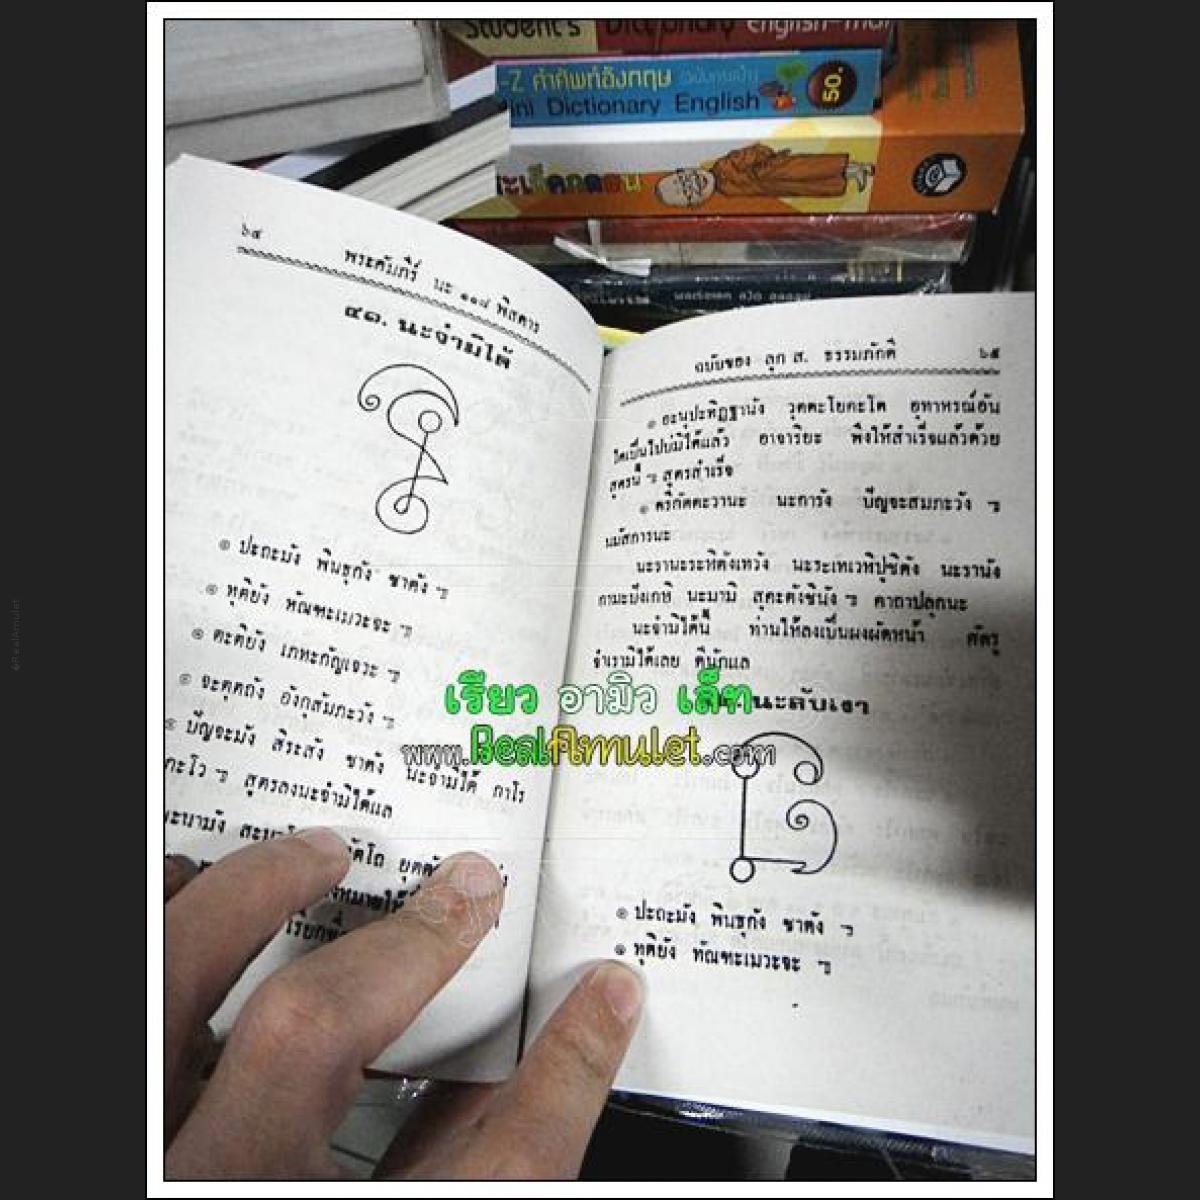 Student's Dictionary English-Thai
-Z คำศัพท์อังกฤษ
Mini Dictionary English
50.
๖๔
พระคัมภีร์ นะ ๑๐๘ พิสดาร
๔๑. นะจำมิได้
๏ ปะถะมัง พินธุกัง ชาตัง ฯ
๏ ทุติยัง ทัณฑะเมวะจะ ฯ
๏ ตะติยัง เภทะกัญเจวะ ฯ
๏ จะตุตถัง อังกุสัมภะวัง ฯ
๏ ปัญจะมัง สิระสัง ชาตัง นะจำมิได้ กาโร
กะโว ฯ สูตรลงนะจำมิได้แล
ฉบับของ ลุก ส. ธรรมภักดี ๖๕
๏ อะนุปะทิฏฐานัง วุตตะโยคะโต อุทาหรณ์อัน
ใดเป็นไปบ่มิได้แล้ว อาจาริยะ พึงให้สำเร็จแล้วด้วย
สูตรนี้ ฯ สูตรสำเร็จ
๏ ตรีกัตตะวานะ นะการัง ปัญจะสมภะวัง ฯ
นมัสการนะ
นะรานะระหิตังเทวัง นะระเทเวหิปูชิตัง นะรานัง
กามะปังเกหิ นะมามิ สุคะตังชินัง ฯ คาถาปลุกนะ
นะจำมิได้นี้ ท่านให้ลงเป็นผงผัดหน้า ศัตรู
จำเรามิได้เลย ดีนักแล
นะลับเงา
๏ ปะถะมัง พินธุกัง ชาตัง ฯ
๏ ทุติยัง ทัณฑะเมวะจะ ฯ
เรียว อามิว เล็ท
www.RealAmulet.com
©RealAmulet